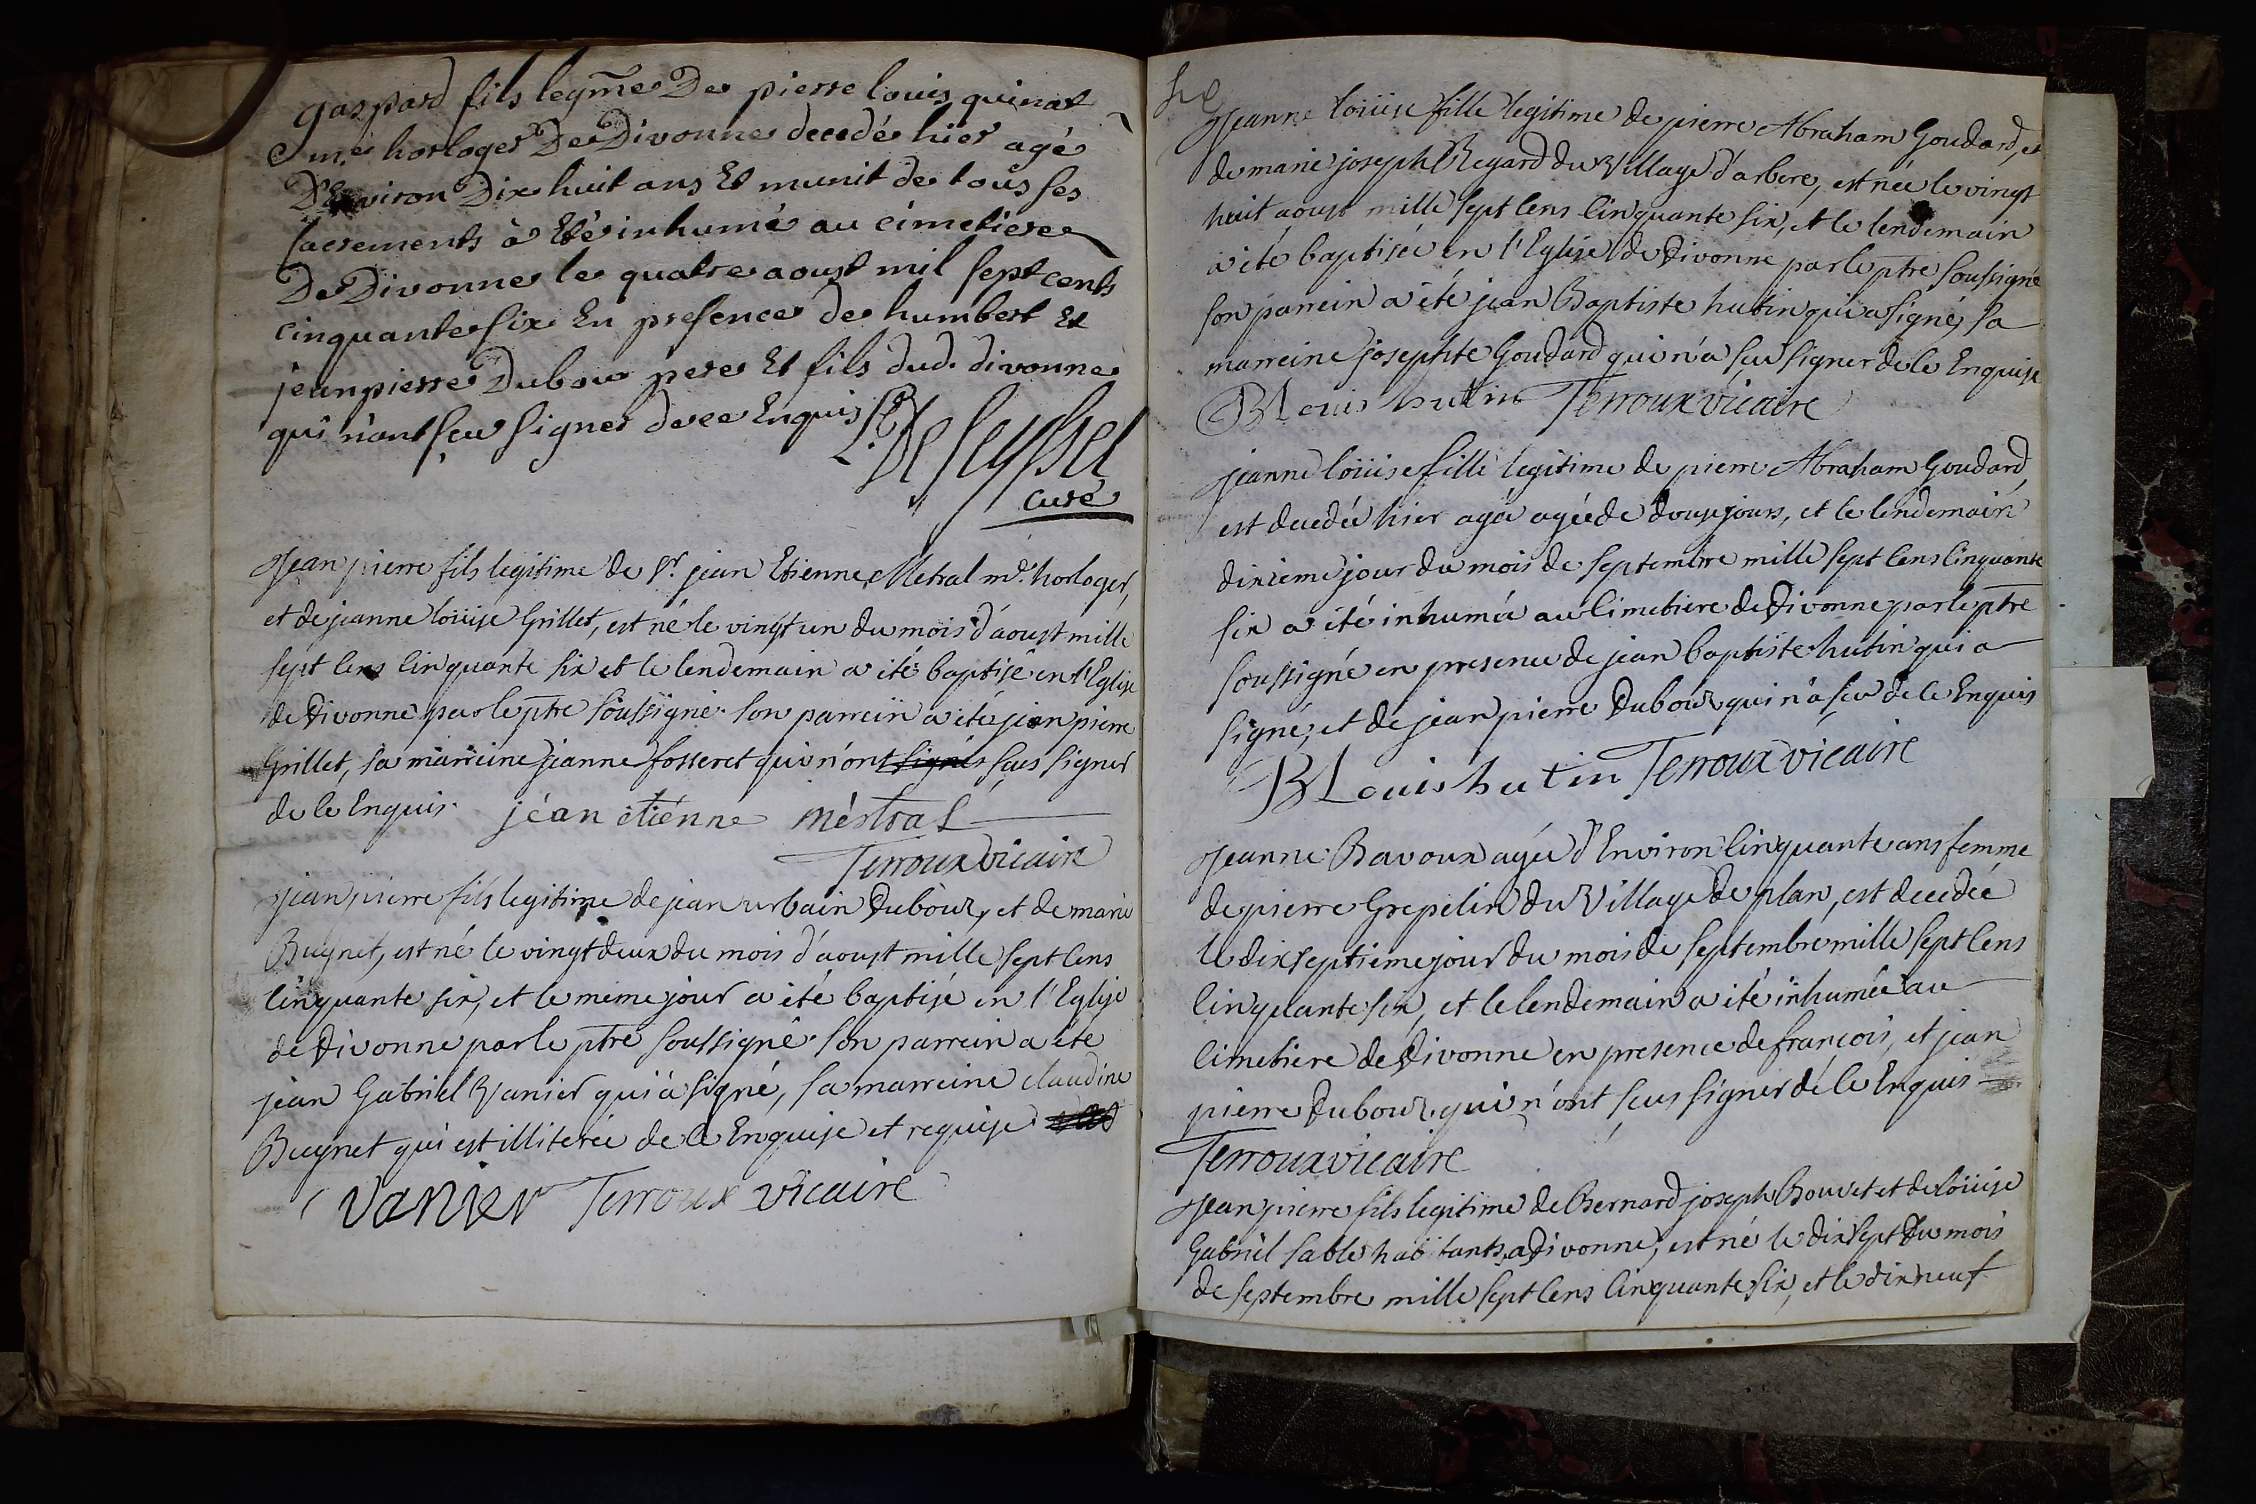 gaspard fils legme De pierre louis quinat
me horloger De Divonne decedé hier agé
D'Environ Dix huit ans Et munit de tous ses
sacrements à Eté inhumé au cimetiere
De Divonne le quatre aoust mil sept cents
cinquante six En presence de humbert Et
jeanpierre Dubour pere Et fils dud. divonne
qui n'ont sçu signer de ce Enquis
De Seyssel
curé
Jean pierre fils legitime de Sr. jean Etienne Metral md. horloger,
et de jeanne loüise Grillet, est né le vingt un du mois d'aoust mille
sept cens cinquante six et le lendemain a été baptisé en l'Eglise
de Divonne par le ptre soussigné. son parrein a été jean pierre
Grillet, sa marreine jeanne fosseret qui n'ont signés sçus signer
de ce Enquis. jéan étiénne méstral
Terroux vicaire
Jean pierre fils legitime de jean urbain Dubour, et de marie
Buynet, est né le vingt deux du mois d'aoust mille sept cens
cinquante six, et le meme jour a été baptisé en l'Eglise
de Divonne par le ptre soussigné. son parrein a été
jean Gabriel Vanier qui a signé, sa marreine claudine
Buynet qui est illiterée de ce Enquise et requise
Vanier Terroux vicaire
Jeanne loüise fille legitime de pierre Abraham Goudard, et
de marie joseph Regard du Village d'arbere, est née le vingt
huit aoust mille sept cens cinquante six, et le lendemain
a été baptisée en l'Eglise de Divonne par le ptre soussigné
son parrein a été jean Baptiste hutin qui a signé, sa
marreine josephte Goudard qui n'a sçu signer de ce Enquise
B Louis hutin Terroux vicaire
jeanne loüise fille legitime de pierre Abraham Goudard,
est decedée hier agée agée de douze jours, et le lendemain
dixieme jour du mois de septembre mille sept cens cinquante
six a été inhumée au cimetiere de Divonne par le ptre
soussigné en presence de jean baptiste hutin qui a
signé, et de jean pierre Dubour qui n'a sçu de ce Enquis
B Louis hutin Terroux vicaire
Jeanne Bavoux agée d'Environ cinquante ans femme
de pierre Grepelin du Village de plan, est decedée
le dix septieme jour du mois de septembre mille sept cens
cinquante six, et le lendemain a été inhumée au
cimetiere de Divonne en presence de francois, et jean
pierre Dubour qui n'ont sçus signer de ce Enquis
Terroux vicaire
Jean pierre fils legitime de Bernard joseph Bouvet et de loüise
Gabriel sable habitants a Divonne, est né le dix sept du mois
de septembre mille sept cens cinquante six, et le dix neuf